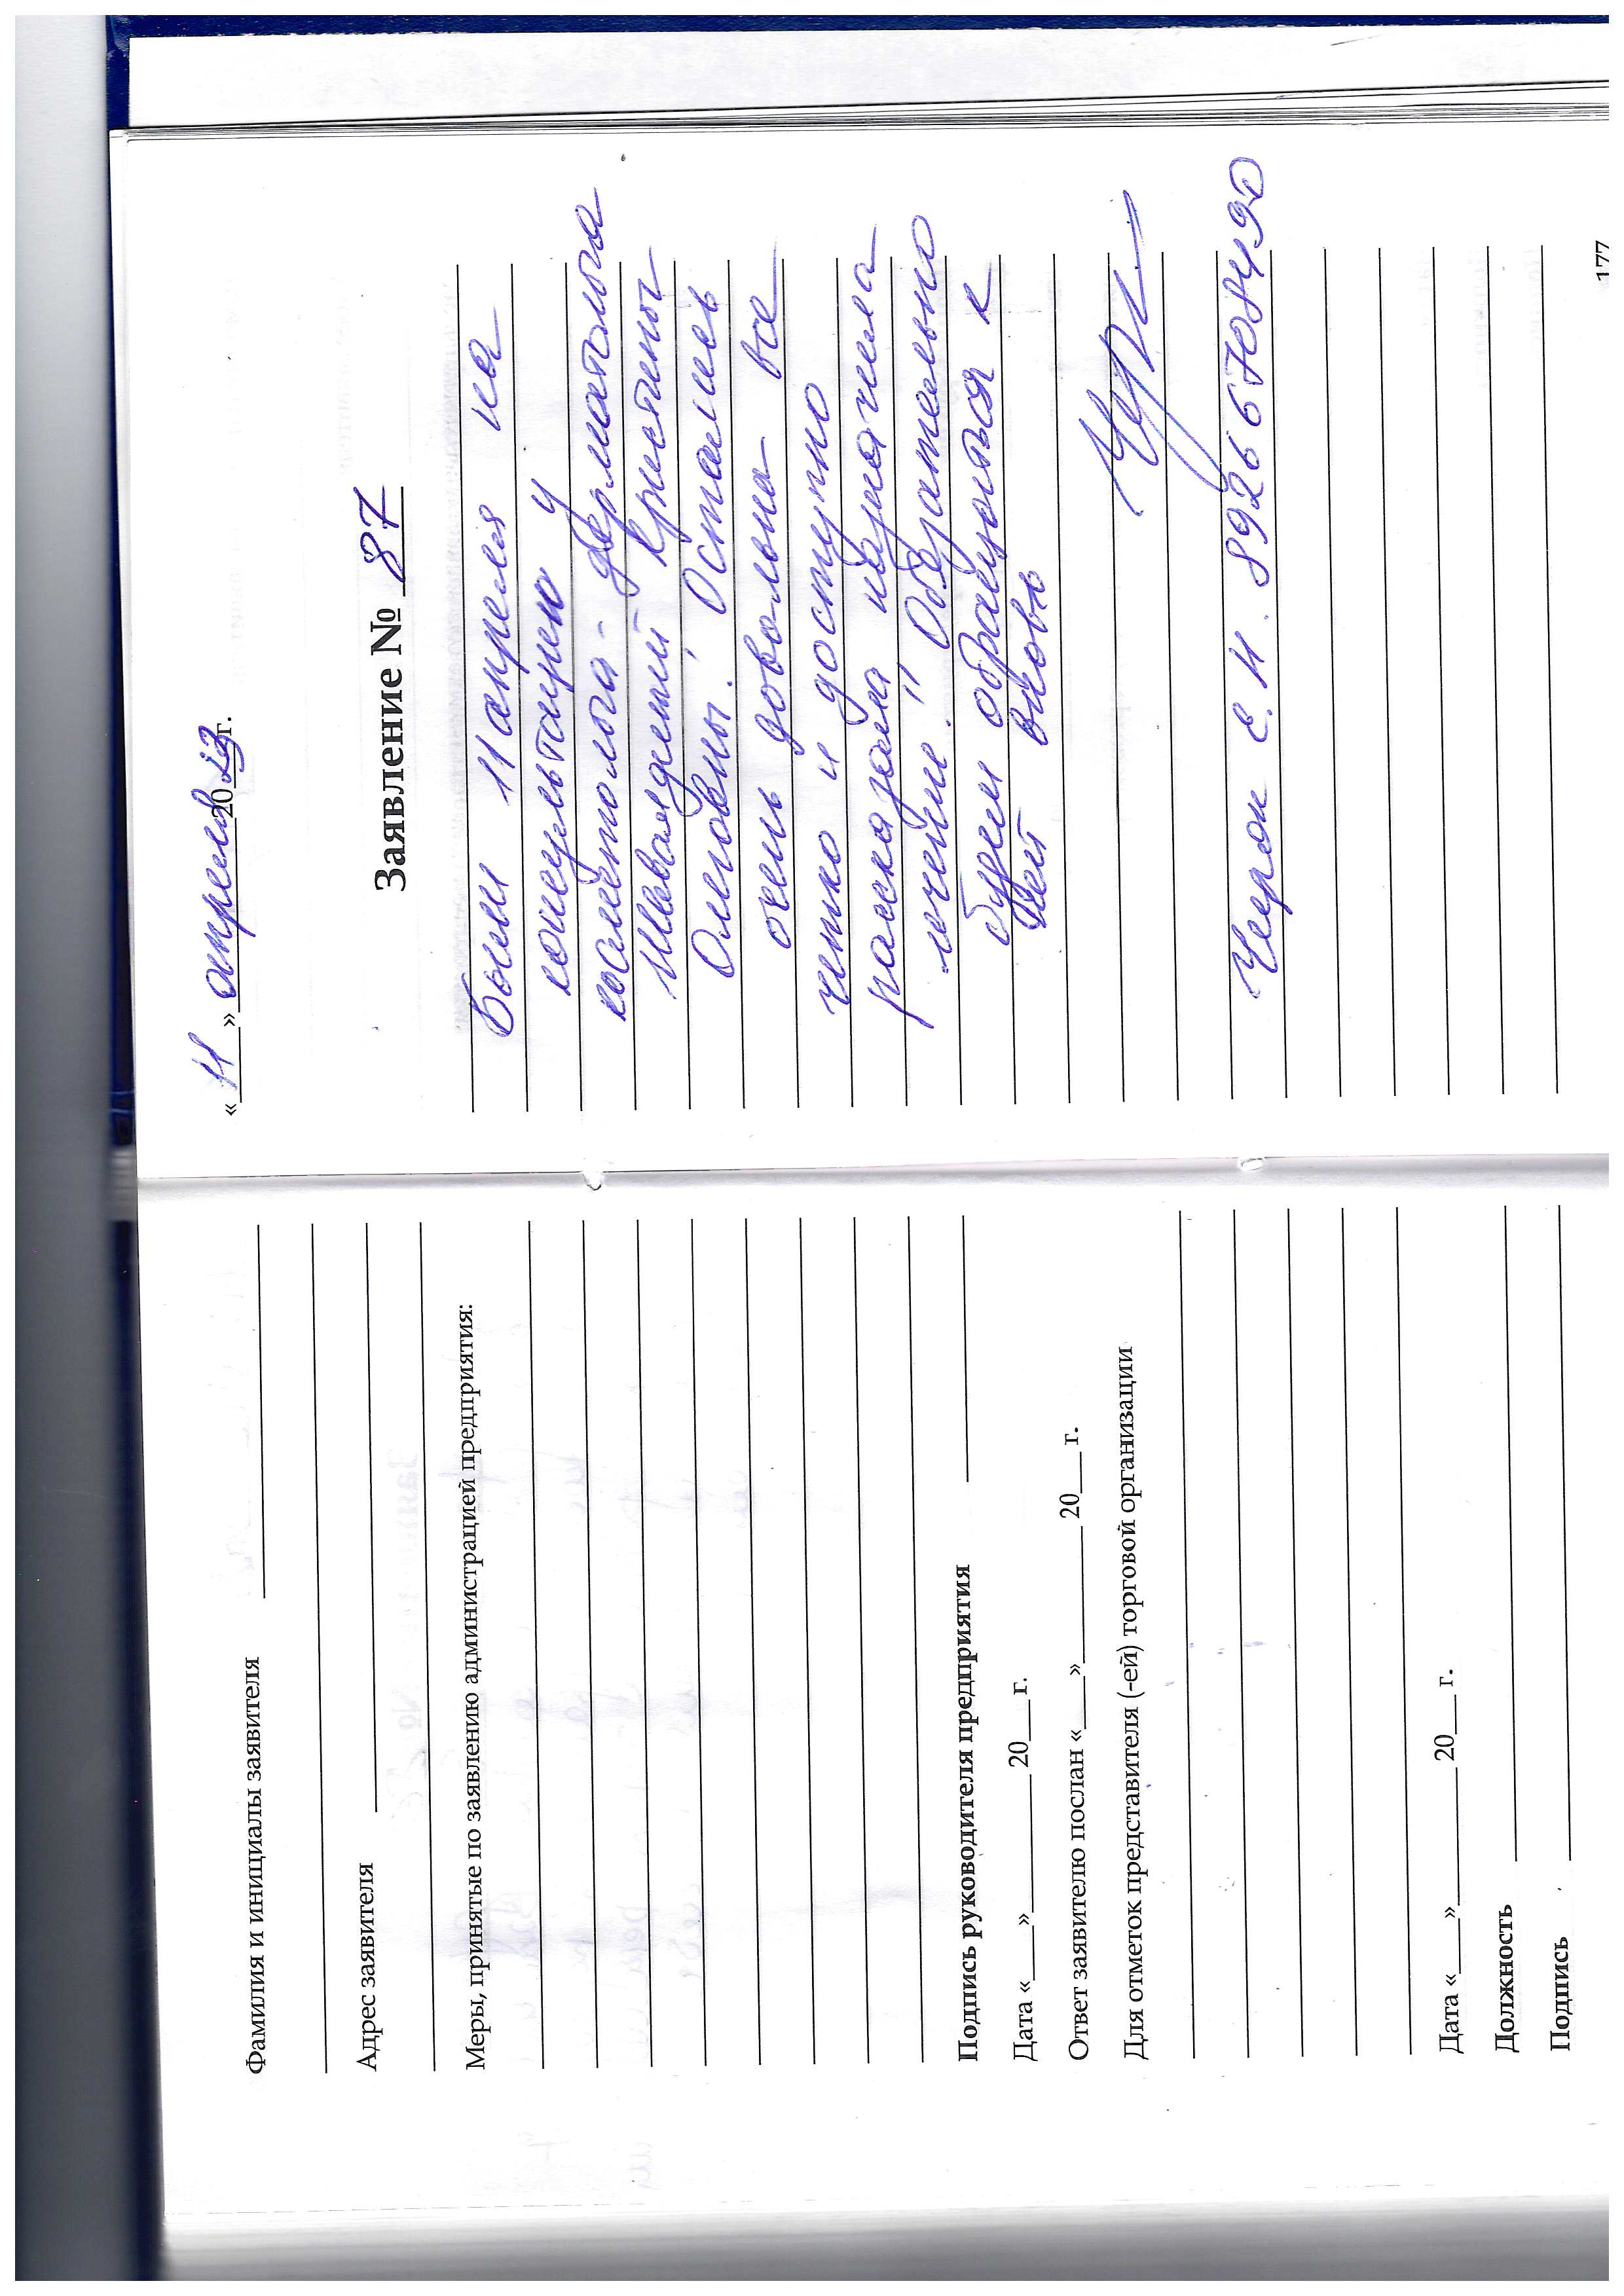 Фамилия и инициалы заявителя
Адрес заявителя
Меры, принятые по заявлению администрацией предприятия:
Подпись руководителя предприятия
Дата «___»__________ 20___г.
Ответ заявителю послан «___»__________ 20___г.
Для отметок представителя (-ей) торговой организации
Дата «___»__________ 20___г.
Должность
Подпись
«11» апреля 2023г.
Заявление № 87
Были 11 апреля на
консультацию у
косметолога-дерматолога
Кристины
Олеговны! Остались
очень довольна все
четко и доступно
рассказала назначила
лечение!! Обязательно
будем обращаться к
вновь
Е. Н. 89266708490
177